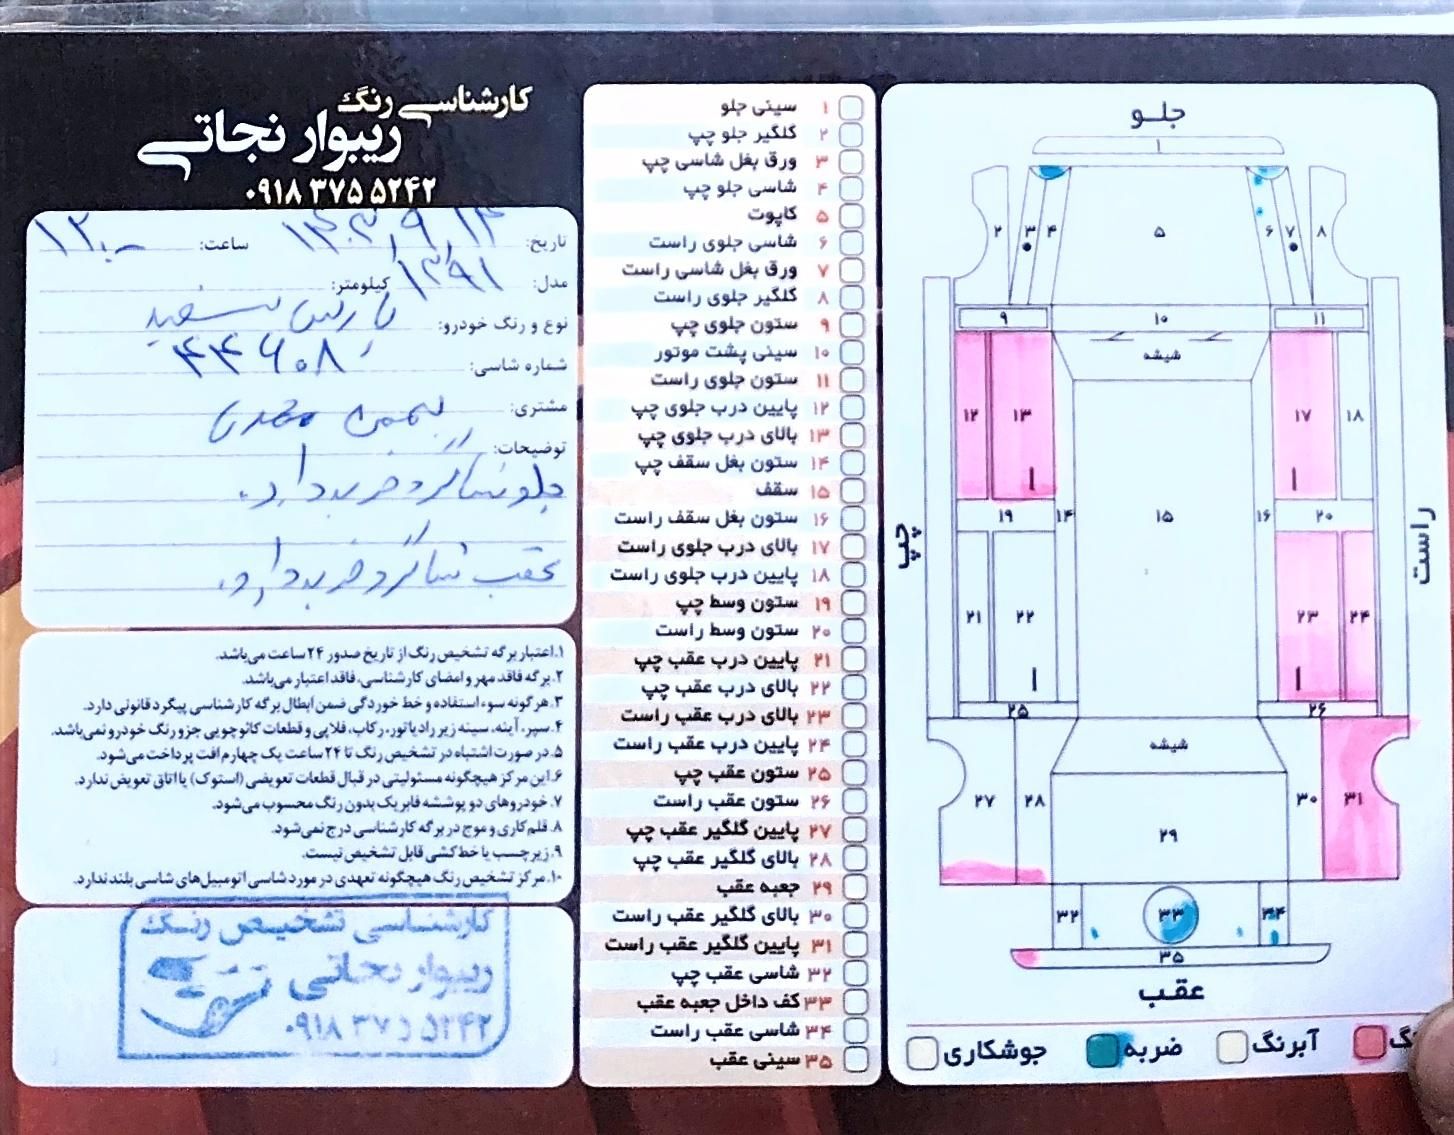 کارشناسی رنگ
ریبوار نجاتی
۰۹۱۸ ۳۷۵ ۵۲۴۲
تاریخ: ۱۴۰۳٫۹٫۱۴ ساعت: ۱۲:۰۰
مدل: ۱۳۹۱ کیلومتر:
نوع و رنگ خودرو: پارس سفید
شماره شاسی: ۴۴۶۰۸
مشتری: بهمن
توضیحات:
جلو شاگرد ضربه دارد.
عقب شاگرد ضربه دارد.
۱.اعتبار برگه تشخیص رنگ از تاریخ صدور ۲۴ ساعت می‌باشد.
۲.برگه فاقد مهر و امضای کارشناسی، فاقد اعتبار می‌باشد.
۳.هرگونه سوء استفاده و خط خوردگی ضمن ابطال برگه کارشناسی پیگرد قانونی دارد.
۴.سپر، آینه، سینه زیر رادیاتور، رکاب، فلاپی و قطعات کائوچویی جزو رنگ خودرو نمی‌باشد.
۵.در صورت اشتباه در تشخیص رنگ تا ۲۴ ساعت یک چهارم افت پرداخت می‌شود.
۶.این مرکز هیچگونه مسئولیتی در قبال قطعات تعویضی (استوک) یا اتاق تعویض ندارد.
۷.خودروهای دو پوششه فابریک بدون رنگ محسوب می‌شود.
۸.قلم کاری و موج در برگه کارشناسی درج نمی‌شود.
۹.زیر چسب یا خط کشی قابل تشخیص نیست.
۱۰.مرکز تشخیص رنگ هیچگونه تعهدی در مورد شاسی اتومبیل‌های شاسی بلند ندارد.
کارشناسی تشخیص رنگ
ریبوار نجاتی
۰۹۱۸ ۳۷۵ ۵۲۴۲
۱ سینی جلو
۲ گلگیر جلو چپ
۳ ورق بغل شاسی چپ
۴ شاسی جلو چپ
۵ کاپوت
۶ شاسی جلوی راست
۷ ورق بغل شاسی راست
۸ گلگیر جلوی راست
۹ ستون جلوی چپ
۱۰ سینی پشت موتور
۱۱ ستون جلوی راست
۱۲ پایین درب جلوی چپ
۱۳ بالای درب جلوی چپ
۱۴ ستون بغل سقف چپ
۱۵ سقف
۱۶ ستون بغل سقف راست
۱۷ بالای درب جلوی راست
۱۸ پایین درب جلوی راست
۱۹ ستون وسط چپ
۲۰ ستون وسط راست
۲۱ پایین درب عقب چپ
۲۲ بالای درب عقب چپ
۲۳ بالای درب عقب راست
۲۴ پایین درب عقب راست
۲۵ ستون عقب چپ
۲۶ ستون عقب راست
۲۷ پایین گلگیر عقب چپ
۲۸ بالای گلگیر عقب چپ
۲۹ جعبه عقب
۳۰ بالای گلگیر عقب راست
۳۱ پایین گلگیر عقب راست
۳۲ شاسی عقب چپ
۳۳ کف داخل جعبه عقب
۳۴ شاسی عقب راست
۳۵ سینی عقب
جلو
۱
۲ ۳ ۴ ۵ ۶ ۷ ۸
۹ ۱۰ ۱۱
شیشه
۱۲ ۱۳ ۱۷ ۱۸
چپ ۱۹ ۱۴ ۱۵ ۱۶ ۲۰ راست
۲۱ ۲۲ ۲۳ ۲۴
۲۵ ۲۶
شیشه
۲۷ ۲۸ ۲۹ ۳۰ ۳۱
۳۲ ۳۳ ۳۴
۳۵
عقب
آبرنگ ضربه جوشکاری